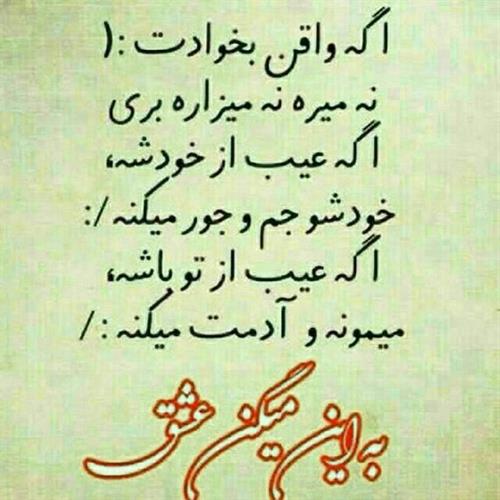 اگه واقن بخوادت :(
نه میره نه میزاره بری
اگه عیب از خودشه،
خودشو جم و جور میکنه /:
اگه عیب از تو باشه،
میمونه و آدمت میکنه :/
به این میگن عشق